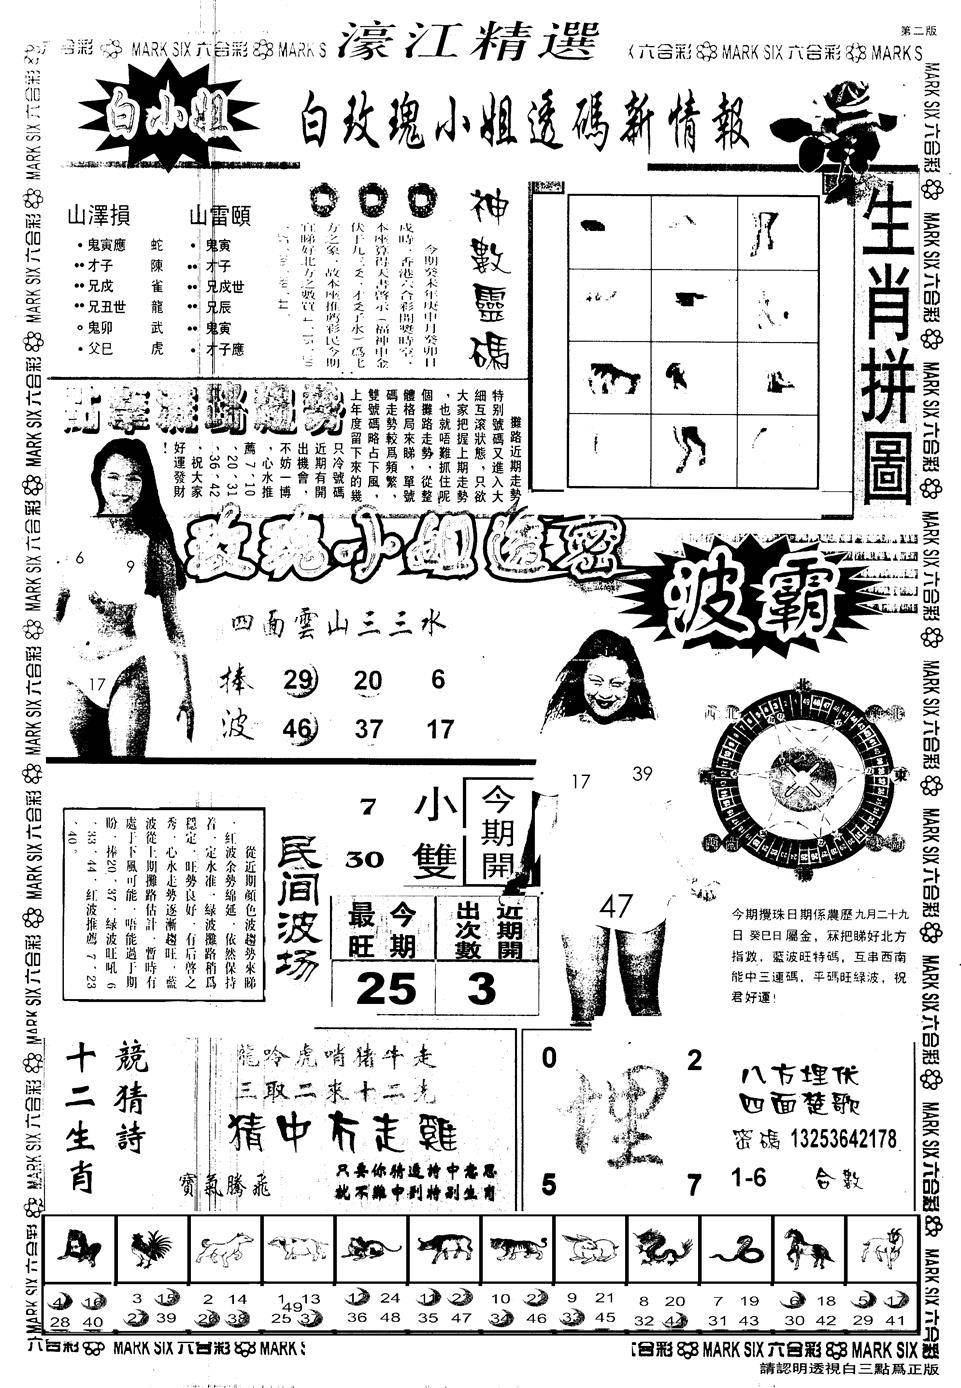 濠江精選
第二版
六合彩 MARK SIX 六合彩 MARK S
六合彩 MARK SIX 六合彩 MARK S
白小姐
白玫瑰小姐透碼新情報
山澤損
鬼寅應 蛇
才子 陳
兄戌 雀
兄丑世 龍
鬼卯 武
父巳 虎
山雷頤
鬼寅
才子
兄戌世
兄辰
鬼寅
才子應
神數靈碼
今期癸未年庚申月癸卯日
戌時，香港六合彩開獎時空，
本座算得天書啓示（福神申金
生肖拼圖
攤路近期走勢
特別號碼又進入大
細互滾狀態，只欲
大家把握上期走勢
，也就唔難抓住呢
個攤路走勢，從整
體格局來睇，單號
碼走勢較爲頻繁，
雙號碼略占下風，
上年度留下來的幾
只冷號碼
近期有開
出機會，
不妨一博
，心水推
薦7.10
.20.31
.36.42
，祝大家
好運發財
！
玫瑰小姐透密
6 9
17
四面雲山三三水
捧 29 20 6
波 46 37 17
波霸
17 39
47
北
東
西北
今期攪珠日期係農歷九月二十九
日 癸巳日屬金，冧把睇好北方
指數，藍波旺特碼，互串西南
能中三連碼，平碼旺緑波，祝
君好運！
從近期顔色波趨勢來睇
，紅波余勢綿延，依然保持
着，定水准，緑波攤路稍爲
穩定，旺勢良好，有后啓之
秀，心水走勢逐漸趨旺，藍
波從上期攤路估計，暫時有
處于下風可能，唔能過于期
盼，捧20.37，緑波旺吼6
.33.44，紅波推薦7.23
.40。
民间波场
7 小
30 雙
今期開
最旺 今期
出次數 近期開
25 3
競猜詩
十二生肖
龍吟虎哨猪牛走
三取二來十二先
猜中冇走雞
寶氣騰飛
只要你猜透詩中意思
就不難中到特別生肖
0 2
埋
5 7
八方埋伏
四面楚歌
密碼 13253642178
1-6 合數
4 16 28 40
3 15 27 39
2 14 26 38
1 13 49 25 37
12 24 36 48
11 23 35 47
10 22 34 46
9 21 33 45
8 20 32 44
7 19 31 43
6 18 30 42
5 17 29 41
六合彩 MARK SIX 六合彩 MARK S
六合彩 MARK SIX 六合彩 MARK SIX 六合彩
請認明透視白三點爲正版